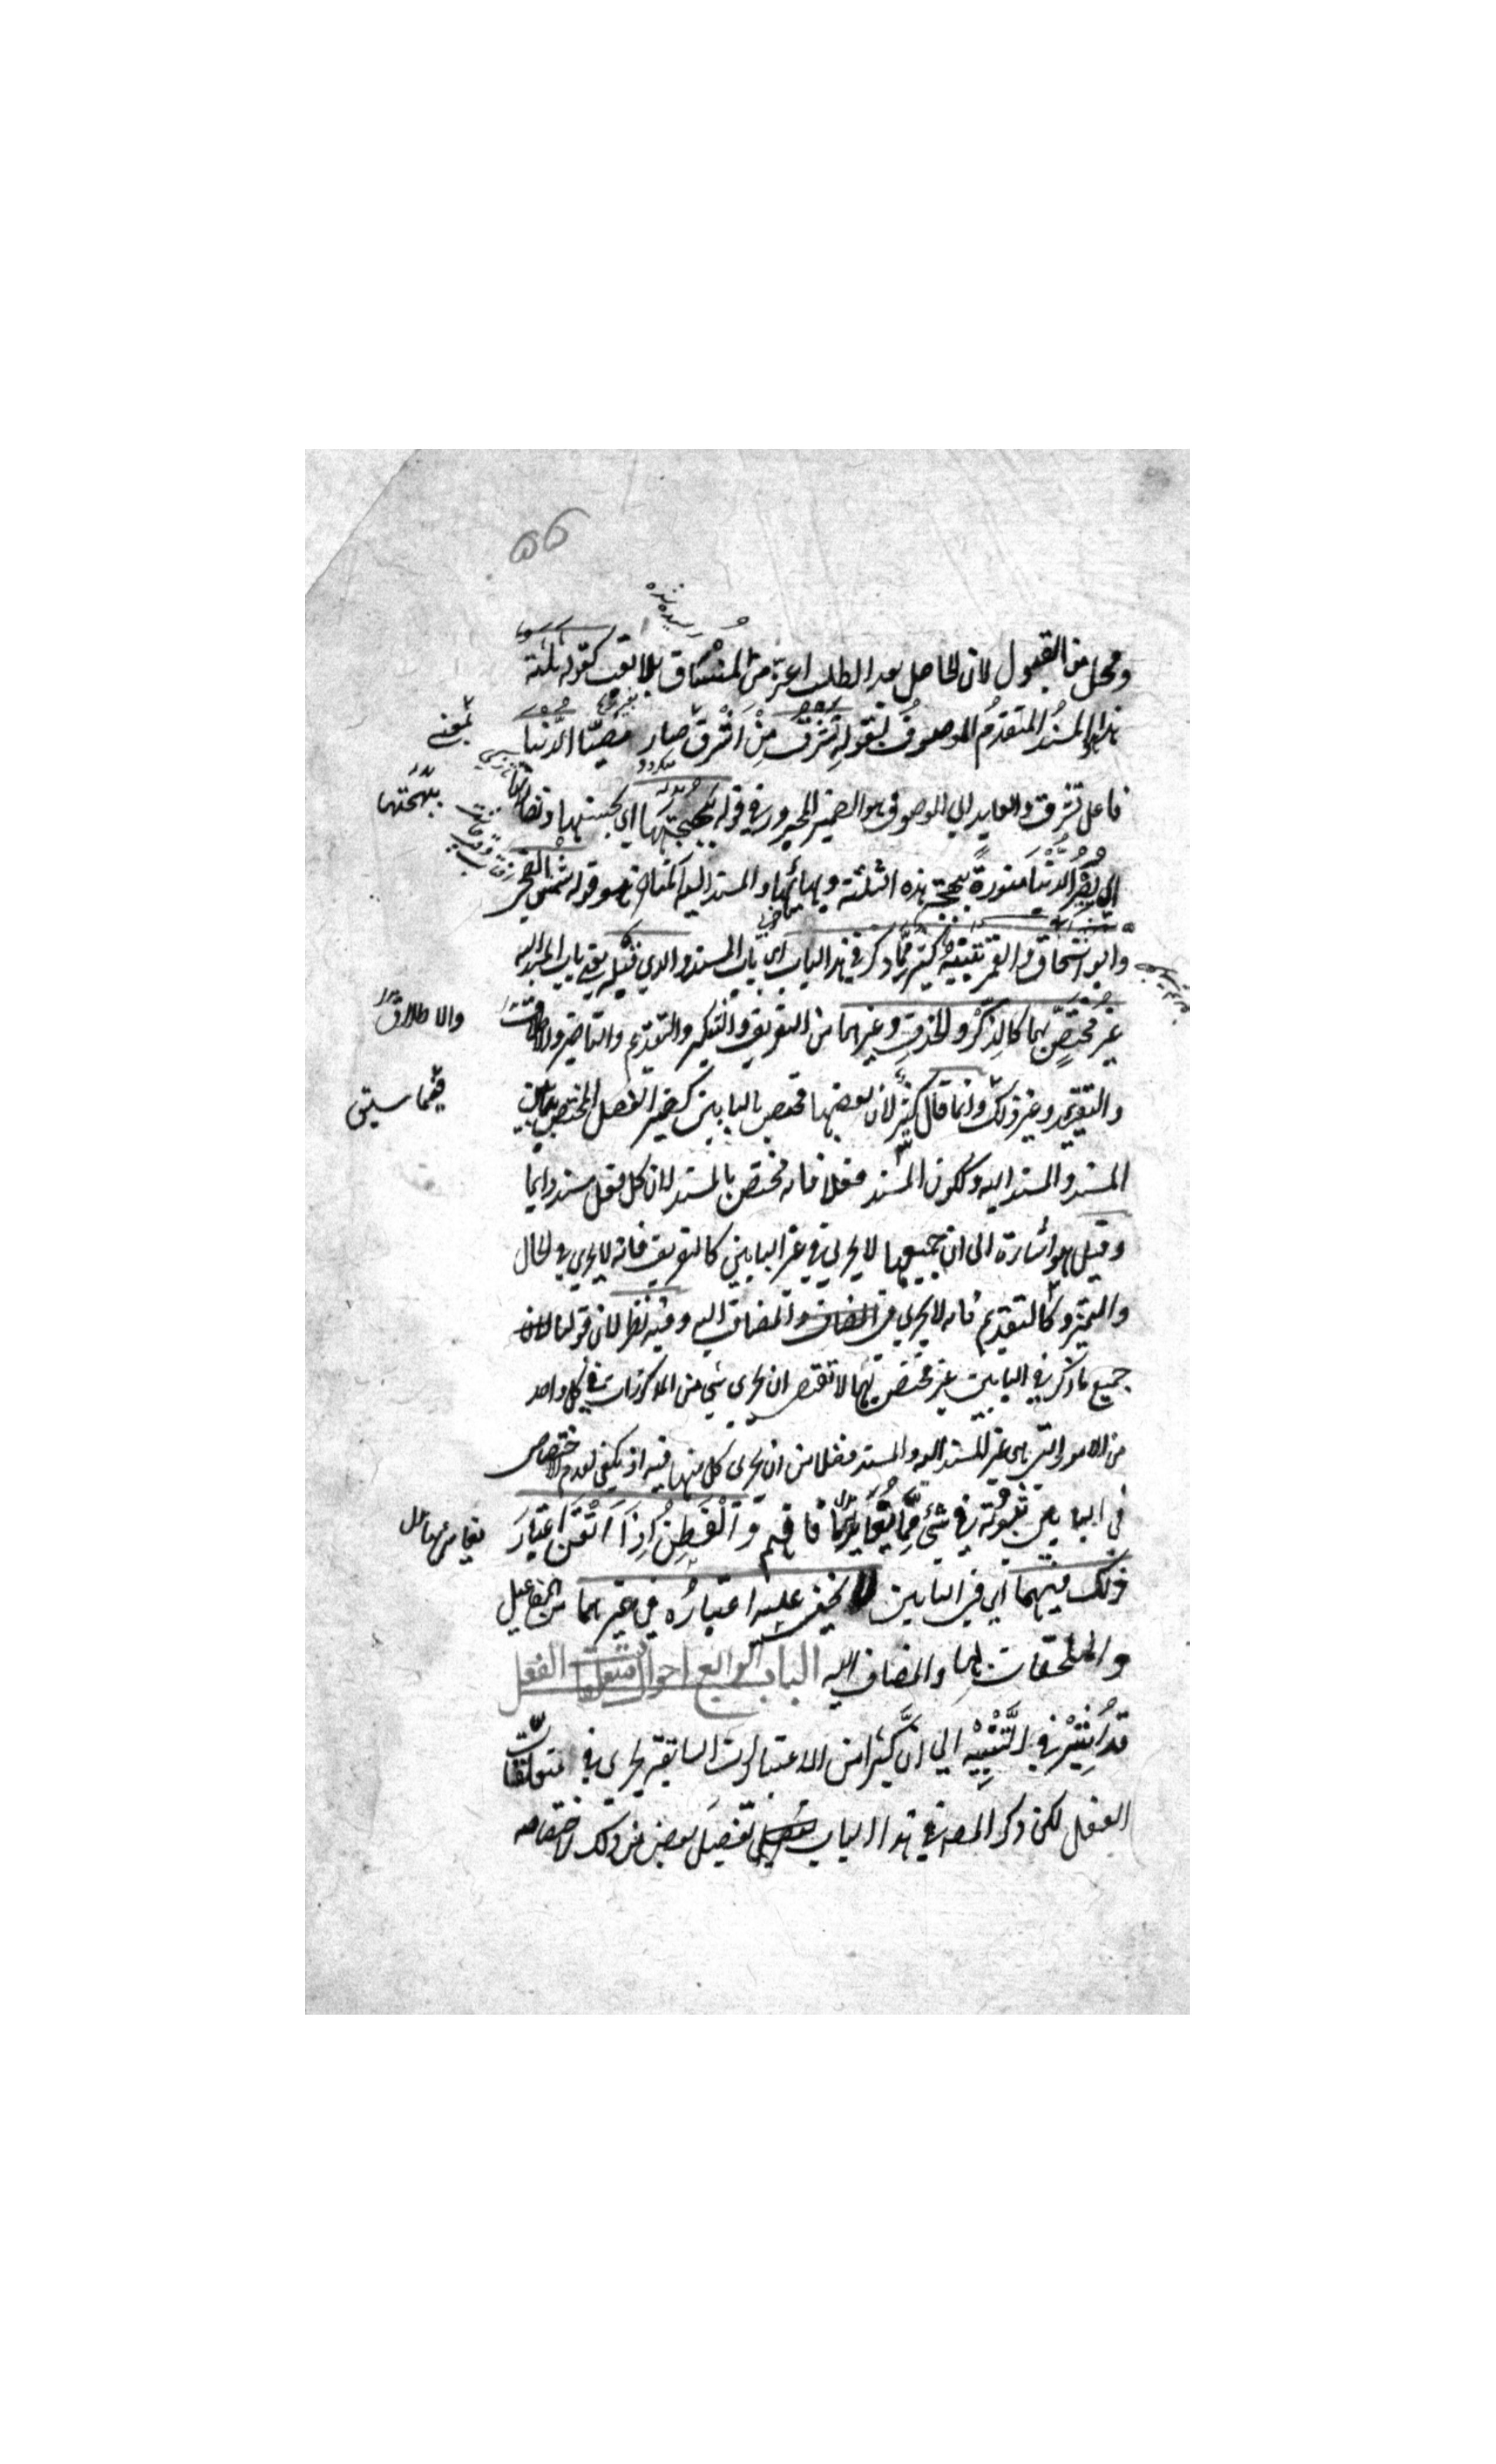 ومحل من القبول لان الحاصل بعد الطلب اعز من المنساق بلا تعب كقوله ثلثة
هذا هو المسند المتقدم الموصوف بقوله تشرق من اشرق صار مضيئا الدنيا
فاعل تشرق والعايد الي الموصوف هو الضمير المجرور في قوله ببهجتها اي بحسنها ونضارتها
اي تصير الدنيا منورة ببهجة هذه الثلثة وبهائها والمسند اليه المتاخر هو قوله شمس الضحى
وابو اسحاق والقمر تنبيه كثير مما ذكر في هذا الباب اي باب المسند والذي قبله يعني باب المسند اليه
غير مختص بهما كالذكر والحذف وغيرهما من التعريف والتنكير والتقديم والتاخير والاطلاق
والتقييد وغير ذلك وانما قال كثير لان بعضها مختص بالبابين كضمير الفصل المختص بما بين
المسند والمسند اليه وككون المسند فعلا فانه مختص بالمسند لان كل فعل مسند دايما
وقيل هو اشارة الى ان جميعها لا يجري في غير البابين كالتعريف فانه لا يجري في الحال
والتميز وكالتقديم فانه لا يجري في المضاف والمضاف اليه وفيه نظر لان قولنا
جميع ما ذكر في البابين غير مختص بهما لا تقتض ان يجري شي من المذكورات في كل واحد
من الامور التي هي غير المسند اليه والمسند فضلا من ان يجري كل منها فيه اذ يكفي لعدم الاختصاص
في البابين ثبوته في شئ مما يغايرهما فافهم والفطن اذا اتقن اعتبار
ذلك فيهما اي في البابين لا يخفى عليه اعتباره في غيرهما من المفاعيل
والملحقات بها والمضاف اليه الباب الرابع احوال متعلقات الفعل
قد اشير في التنبيه الي ان كثيرا من الاعتبارات السابقة يجري في متعلقات
الفعل لكن ذكر المصه في هذا الباب تفصيل بعض من ذلك لاختصاصه
بمعنى
ببهجتها
والاطلاق
فيما سبق